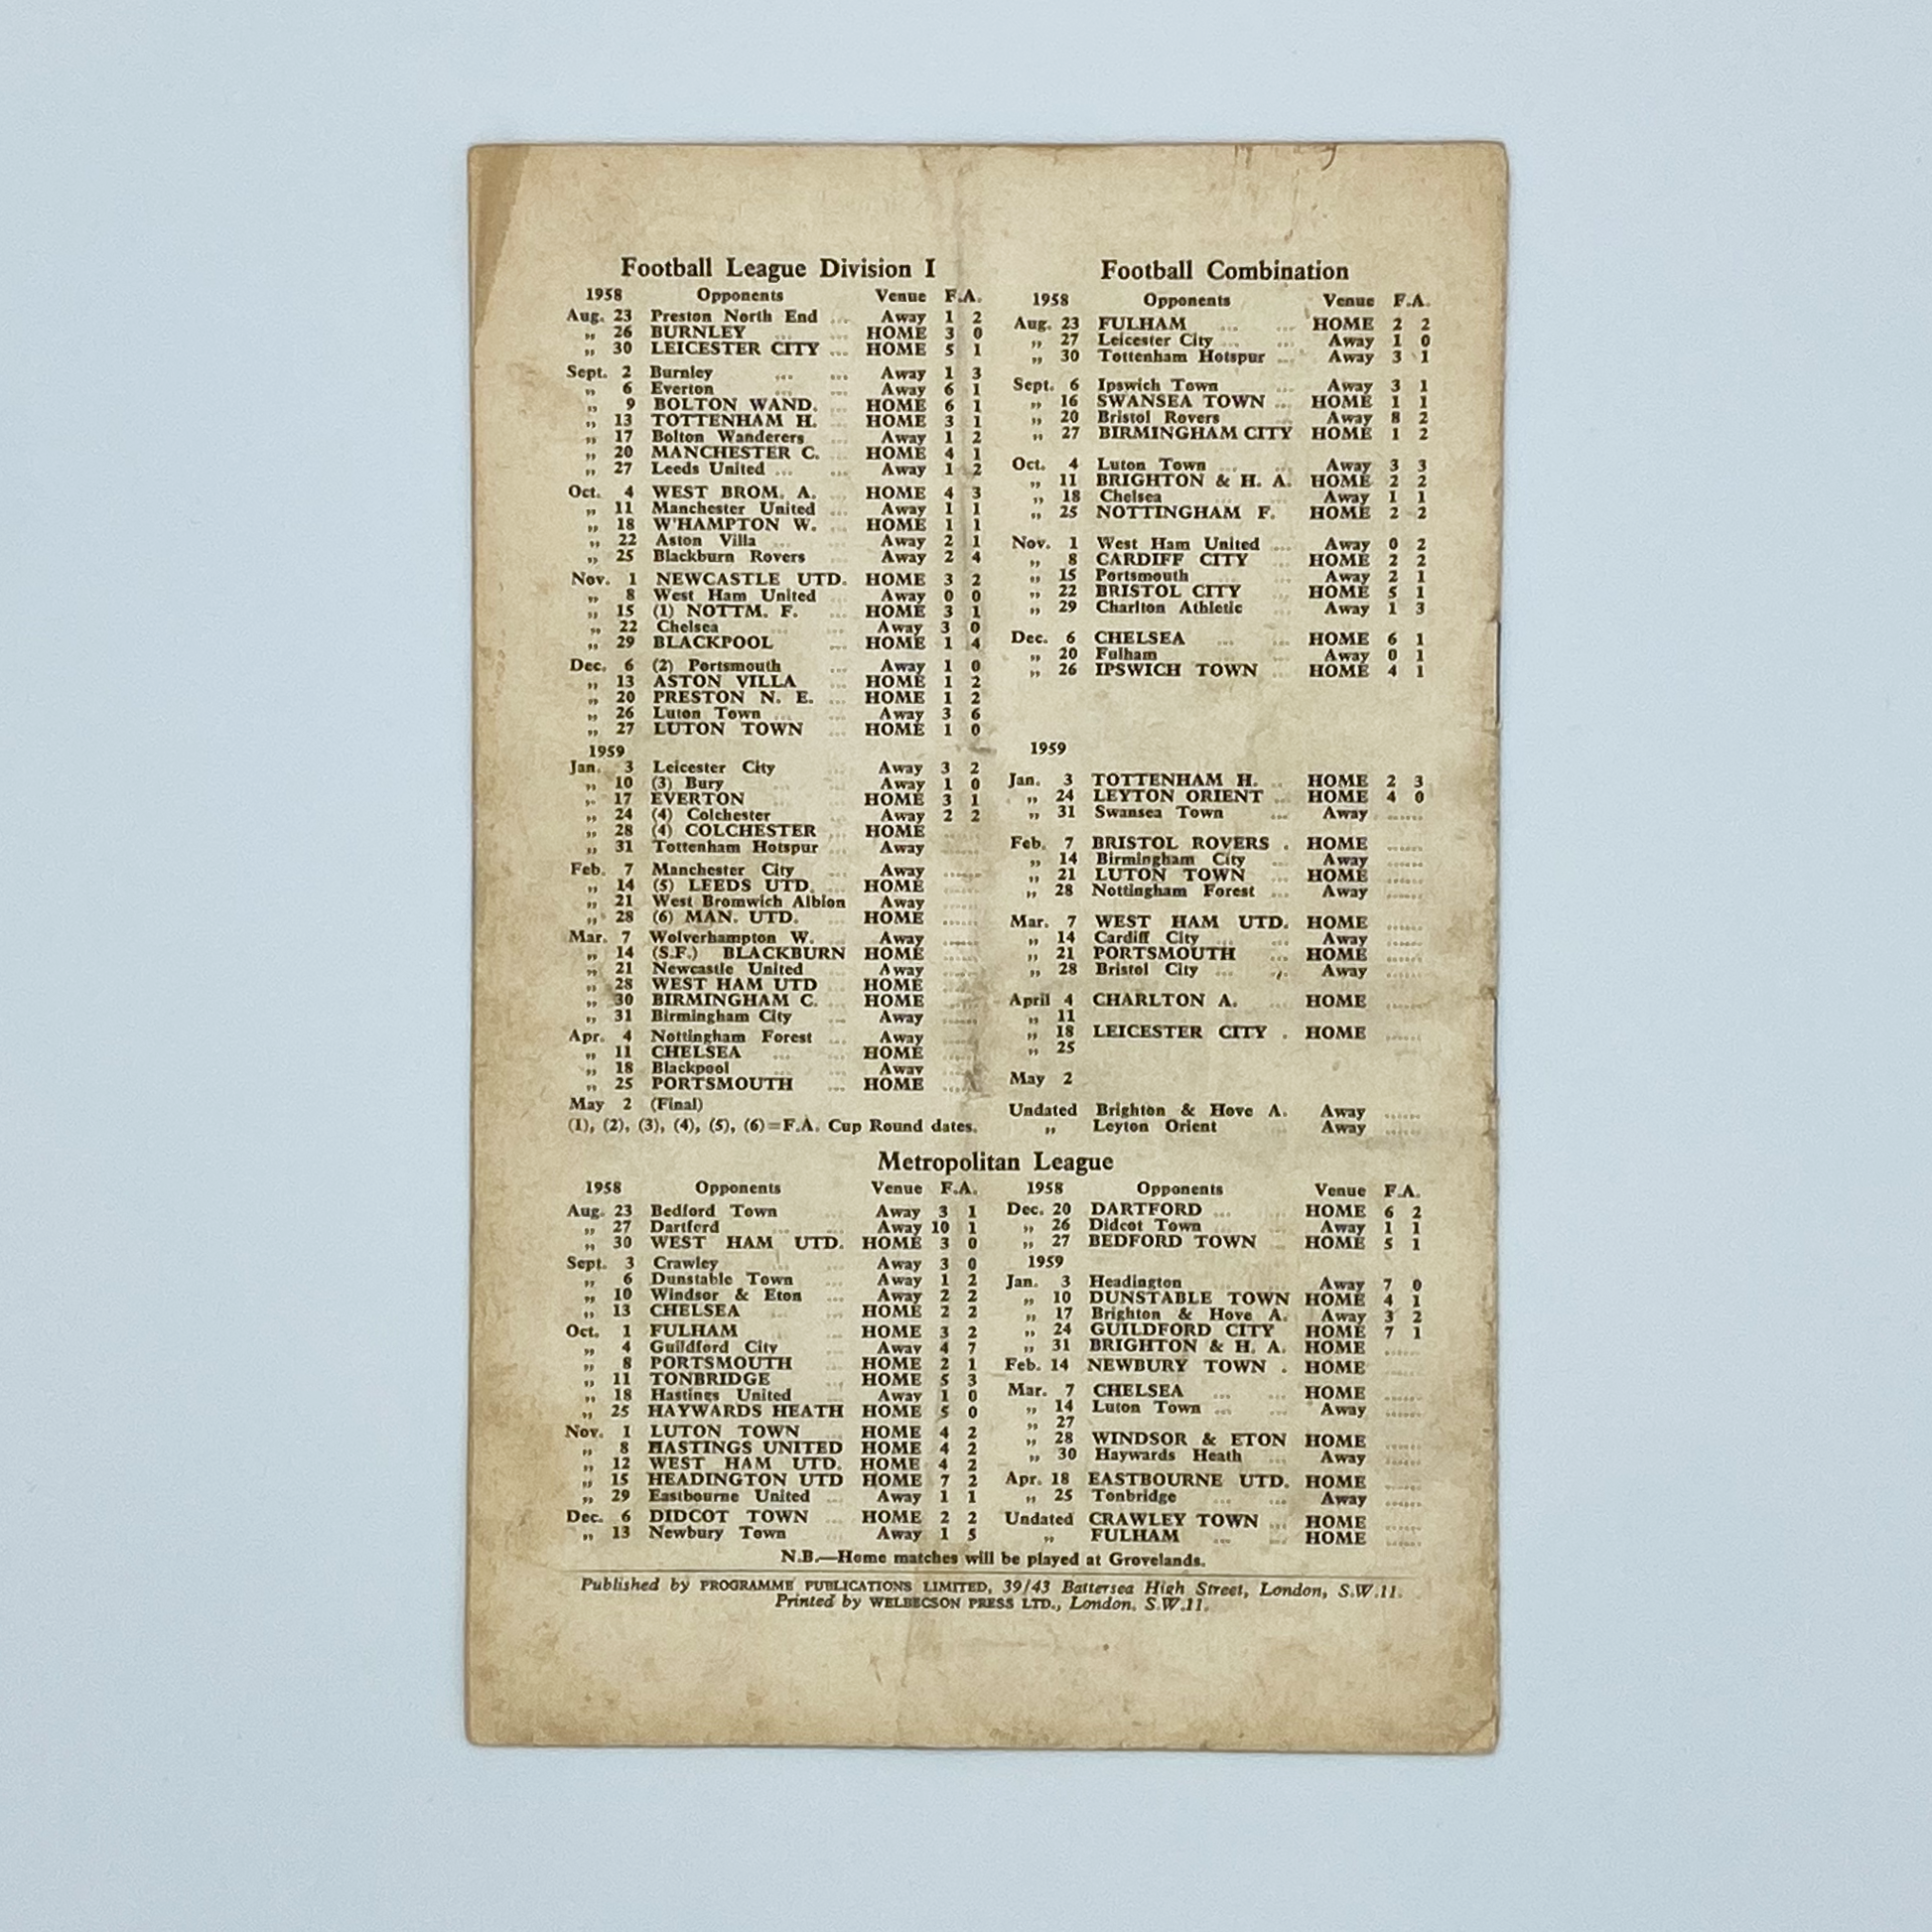 Football League Division I
1958 Opponents Venue F.A.
Aug. 23 Preston North End ... Away 1 2
„ 26 BURNLEY ... ... HOME 3 0
„ 30 LEICESTER CITY ... HOME 5 1
Sept. 2 Burnley ... ... Away 1 3
„ 6 Everton ... ... Away 6 1
„ 9 BOLTON WAND. ... HOME 6 1
„ 13 TOTTENHAM H. ... HOME 3 1
„ 17 Bolton Wanderers ... Away 1 2
„ 20 MANCHESTER C. ... HOME 4 1
„ 27 Leeds United ... ... Away 1 2
Oct. 4 WEST BROM. A. ... HOME 4 3
„ 11 Manchester United ... Away 1 1
„ 18 W'HAMPTON W. ... HOME 1 1
„ 22 Aston Villa ... ... Away 2 1
„ 25 Blackburn Rovers ... Away 2 4
Nov. 1 NEWCASTLE UTD. HOME 3 2
„ 8 West Ham United ... Away 0 0
„ 15 (1) NOTTM. F. ... HOME 3 1
„ 22 Chelsea ... ... Away 3 0
„ 29 BLACKPOOL ... HOME 1 4
Dec. 6 (2) Portsmouth ... Away 1 0
„ 13 ASTON VILLA ... HOME 1 2
„ 20 PRESTON N. E. ... HOME 1 2
„ 26 Luton Town ... ... Away 3 6
„ 27 LUTON TOWN ... HOME 1 0
1959
Jan. 3 Leicester City ... Away 3 2
„ 10 (3) Bury ... ... Away 1 0
„ 17 EVERTON ... ... HOME 3 1
„ 24 (4) Colchester ... Away 2 2
„ 28 (4) COLCHESTER ... HOME
„ 31 Tottenham Hotspur ... Away ......
Feb. 7 Manchester City ... Away ......
„ 14 (5) LEEDS UTD. ... HOME ......
„ 21 West Bromwich Albion Away ......
„ 28 (6) MAN. UTD. ... HOME ......
Mar. 7 Wolverhampton W. ... Away ......
„ 14 (S.F.) BLACKBURN HOME ......
„ 21 Newcastle United ... Away ......
„ 28 WEST HAM UTD ... HOME ......
„ 30 BIRMINGHAM C. ... HOME ......
„ 31 Birmingham City ... Away ......
Apr. 4 Nottingham Forest ... Away ......
„ 11 CHELSEA ... ... HOME ......
„ 18 Blackpool ... ... Away ......
„ 25 PORTSMOUTH ... HOME ......
May 2 (Final)
(1), (2), (3), (4), (5), (6)=F.A. Cup Round dates.
Football Combination
1958 Opponents Venue F.A.
Aug. 23 FULHAM ... ... HOME 2 2
„ 27 Leicester City ... ... Away 1 0
„ 30 Tottenham Hotspur ... Away 3 1
Sept. 6 Ipswich Town ... Away 3 1
„ 16 SWANSEA TOWN ... HOME 1 1
„ 20 Bristol Rovers ... Away 8 2
„ 27 BIRMINGHAM CITY HOME 1 2
Oct. 4 Luton Town ... ... Away 3 3
„ 11 BRIGHTON & H. A. HOME 2 2
„ 18 Chelsea ... ... Away 1 1
„ 25 NOTTINGHAM F. HOME 2 2
Nov. 1 West Ham United .... Away 0 2
„ 8 CARDIFF CITY ... HOME 2 2
„ 15 Portsmouth ... ... Away 2 1
„ 22 BRISTOL CITY ... HOME 5 1
„ 29 Charlton Athletic ... Away 1 3
Dec. 6 CHELSEA ... ... HOME 6 1
„ 20 Fulham ... ... Away 0 1
„ 26 IPSWICH TOWN ... HOME 4 1
1959
Jan. 3 TOTTENHAM H. ... HOME 2 3
„ 24 LEYTON ORIENT ... HOME 4 0
„ 31 Swansea Town ... Away ......
Feb. 7 BRISTOL ROVERS . HOME ......
„ 14 Birmingham City ... Away ......
„ 21 LUTON TOWN ... HOME ......
„ 28 Nottingham Forest ... Away ......
Mar. 7 WEST HAM UTD. HOME ......
„ 14 Cardiff City ... ... Away ......
„ 21 PORTSMOUTH ... HOME ......
„ 28 Bristol City ... ... Away ......
April 4 CHARLTON A. ... HOME ......
„ 11
„ 18 LEICESTER CITY . HOME ......
„ 25
May 2
Undated Brighton & Hove A. Away ......
„ Leyton Orient ... Away ......
Metropolitan League
1958 Opponents Venue F.A.
Aug. 23 Bedford Town ... Away 3 1
„ 27 Dartford ... ... Away 10 1
„ 30 WEST HAM UTD. HOME 3 0
Sept. 3 Crawley ... ... Away 3 0
„ 6 Dunstable Town ... Away 1 2
„ 10 Windsor & Eton ... Away 2 2
„ 13 CHELSEA ... ... HOME 2 2
Oct. 1 FULHAM ... ... HOME 3 2
„ 4 Guildford City ... Away 4 7
„ 8 PORTSMOUTH ... HOME 2 1
„ 11 TONBRIDGE ... HOME 5 3
„ 18 Hastings United ... Away 1 0
„ 25 HAYWARDS HEATH HOME 5 0
Nov. 1 LUTON TOWN ... HOME 4 2
„ 8 HASTINGS UNITED HOME 4 2
„ 12 WEST HAM UTD. HOME 4 2
„ 15 HEADINGTON UTD HOME 7 2
„ 29 Eastbourne United ... Away 1 1
Dec. 6 DIDCOT TOWN ... HOME 2 2
„ 13 Newbury Town ... Away 1 5
1958 Opponents Venue F.A.
Dec. 20 DARTFORD ... ... HOME 6 2
„ 26 Didcot Town ... Away 1 1
„ 27 BEDFORD TOWN ... HOME 5 1
1959
Jan. 3 Headington ... Away 7 0
„ 10 DUNSTABLE TOWN HOME 4 1
„ 17 Brighton & Hove A. Away 3 2
„ 24 GUILDFORD CITY HOME 7 1
„ 31 BRIGHTON & H. A. HOME ......
Feb. 14 NEWBURY TOWN . HOME ......
Mar. 7 CHELSEA ... ... HOME ......
„ 14 Luton Town ... ... Away ......
„ 27
„ 28 WINDSOR & ETON HOME ......
„ 30 Haywards Heath ... Away ......
Apr. 18 EASTBOURNE UTD. HOME ......
„ 25 Tonbridge ... ... Away ......
Undated CRAWLEY TOWN ... HOME ......
„ FULHAM ... ... HOME ......
N.B.—Home matches will be played at Grovelands.
Published by PROGRAMME PUBLICATIONS LIMITED, 39/43 Battersea High Street, London, S.W.11.
Printed by WELBECSON PRESS LTD., London, S.W.11.